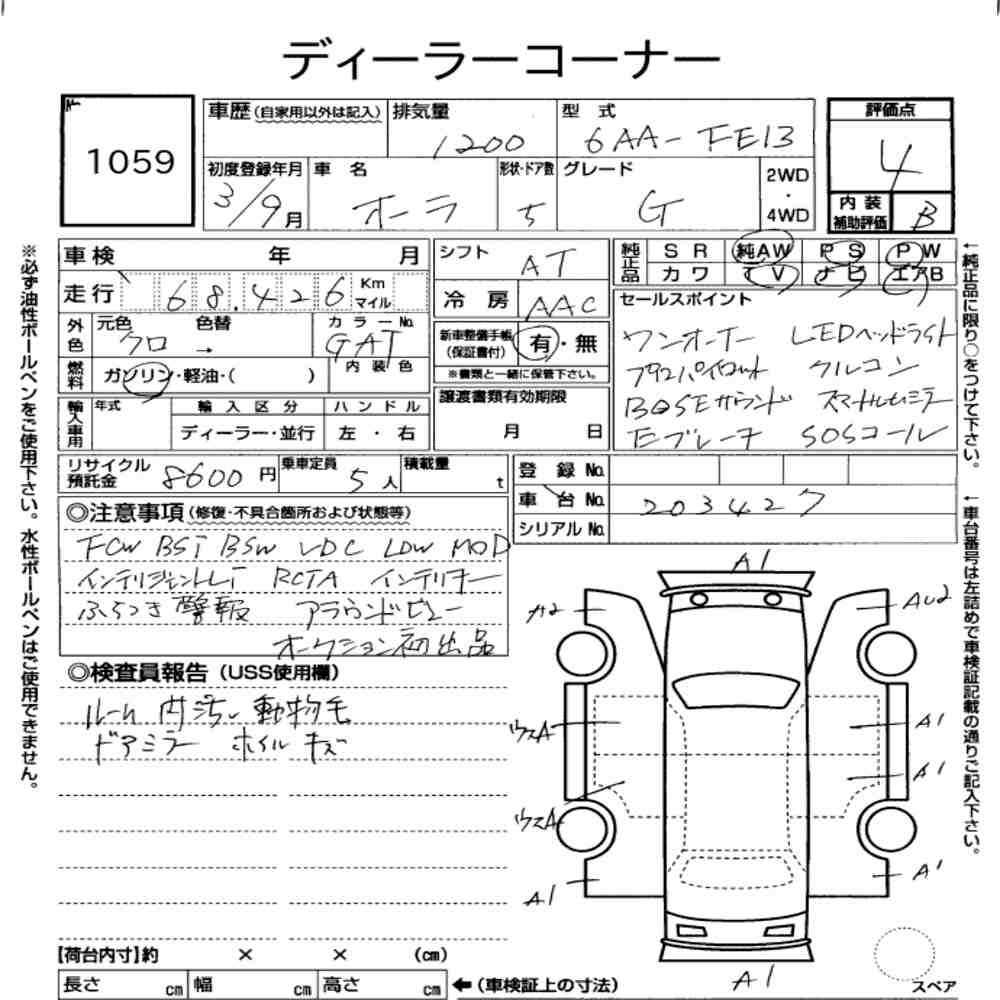 ディーラーコーナー
1059
車歴(自家用以外は記入) 排気量 1200 型式 6AA-FE13 評価点 4
初度登録年月 3/9月 車名 オーラ 形状・ドア数 5 グレード G 2WD・4WD 内装補助評価 B
車検 年 月 シフト AT 純正品 SR 純AW PS PW
カワ TV ナビ エアB
走行 68,426 Km マイル 冷房 AAC セールスポイント
外色 元色 クロ → 色替 カラーNo. GAT 内装色
新車整備手帳(保証書付) 有・無
※書類と一緒に保管下さい。
ワンオーナー LEDヘッドライト
プロパイロット クルコン
BOSEサウンド スマートルームミラー
Eブレーキ SOSコール
燃料 ガソリン・軽油・( )
譲渡書類有効期限 月 日
輸入車用 年式 輸入区分 ハンドル
ディーラー・並行 左・右
リサイクル預託金 8600円 乗車定員 5人 積載量 t
登録No.
車台No. 203427
シリアルNo.
◎注意事項(修復・不具合箇所および状態等)
FCW BSI BSW VDC LDW MOD
インテリジェントLI RCTA インテリキー
ふらつき警報 アラウンドビュー
オークション初出品
◎検査員報告(USS使用欄)
ルーム内汚い 動物毛
ドアミラー ホイルキズ
A1
A2
AU2
ウスA
A1
A1
ウスA
A1
A1
A1
【荷台内寸】約 × × (cm)
長さ cm 幅 cm 高さ cm ←(車検証上の寸法)
スペア
※必ず油性ボールペンをご使用下さい。水性ボールペンはご使用できません。
←純正品に限り○をつけて下さい。
←車台番号は左詰めで車検証記載の通りご記入下さい。